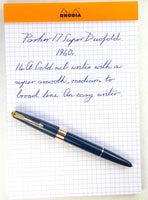 RHODIA
Parker 17 Super Duofold
1960s.
14ct Gold nib writes with a
super smooth, medium to
broad line. An easy writer.